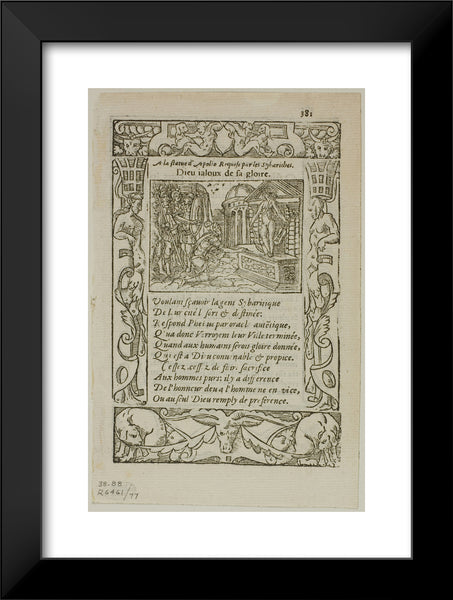 381
A la statue d'Apollo Requise par les Sybarithes.
Dieu ialoux de sa gloire.
Voulant sçauoir la gent Sybaritique
De leur ciuel sort & destinée:
Respond Phebus par oracle autétique,
Qu'a donc Verroyent leur Ville terminée,
Quand aux humains seroit gloire donnée,
Qui est a Dieu conuenable & propice.
Cessez, cessez de faire sacrifice
Aux hommes purs: il y a difference
De l'honneur deu a l'homme ne en vice,
Ou au seul Dieu remply de preference.
38-88
R6461/77